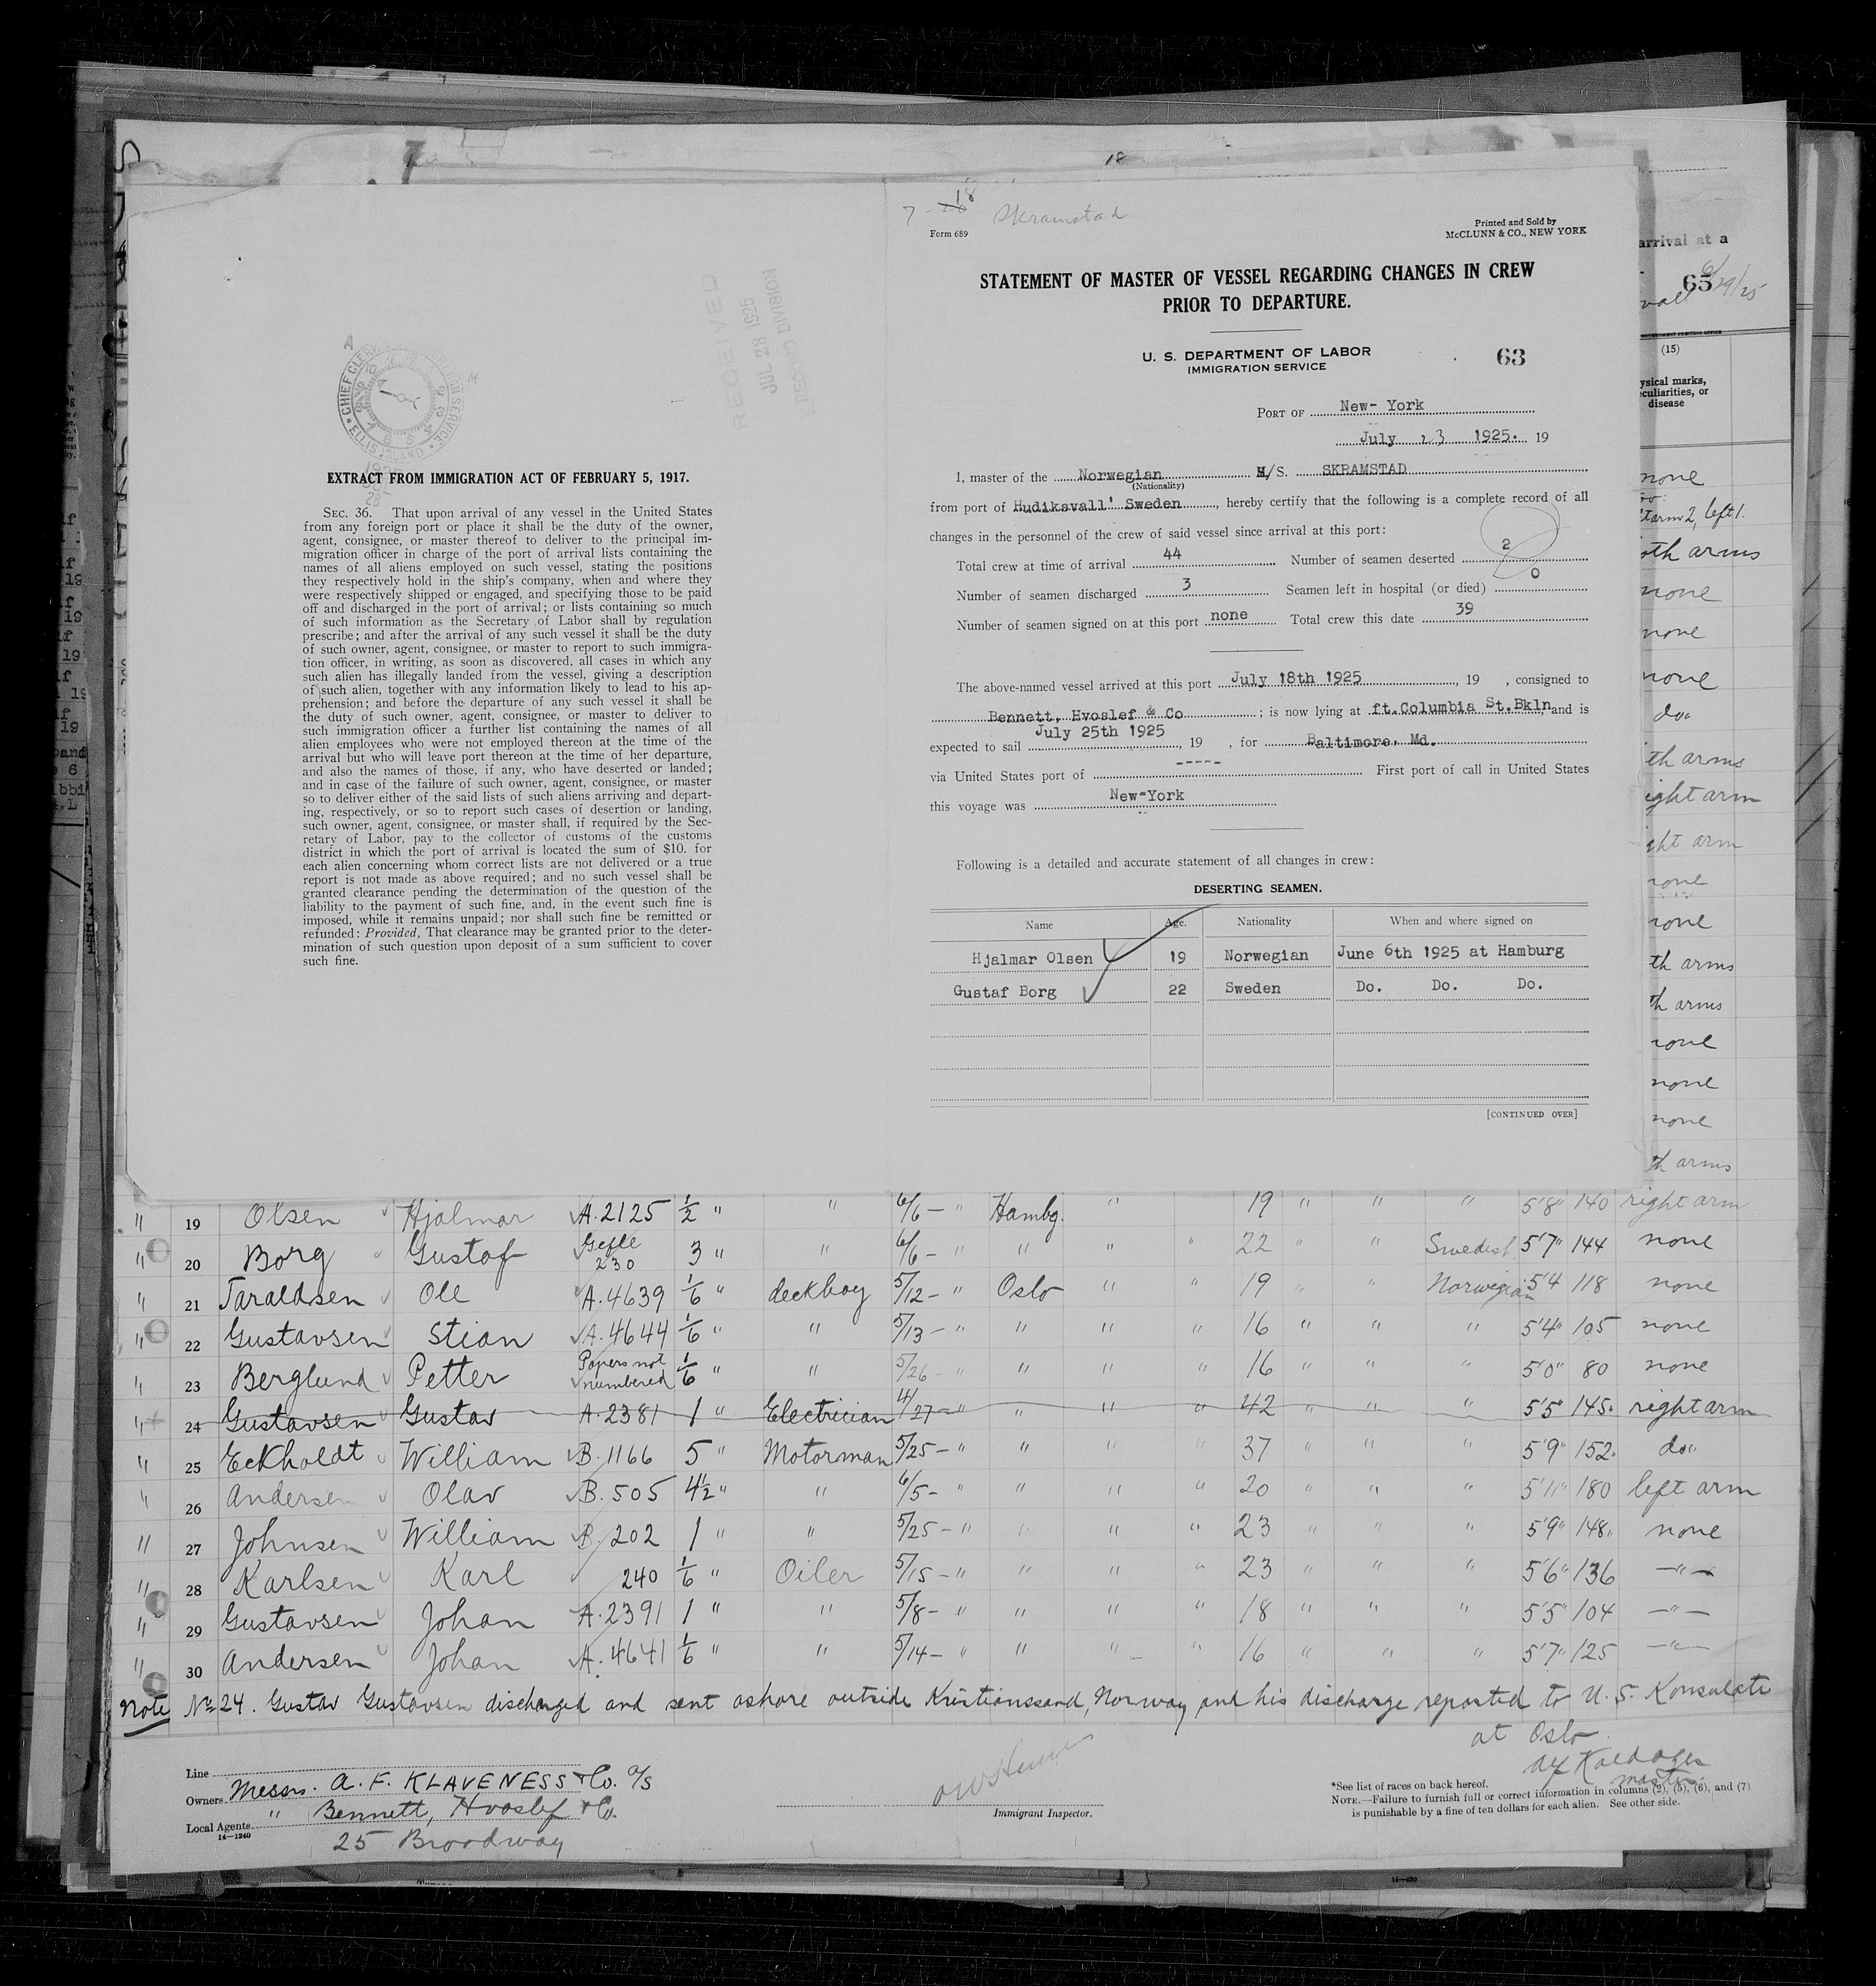 18
7-18 Skramstad
Form 689
Printed and Sold by
McCLUNN & CO., NEW YORK
STATEMENT OF MASTER OF VESSEL REGARDING CHANGES IN CREW
PRIOR TO DEPARTURE.
U. S. DEPARTMENT OF LABOR
IMMIGRATION SERVICE
63
PORT OF New-York
July 23 1925. 19
I, master of the Norwegian M/S. SKRAMSTAD
(Nationality)
from port of Hudiksvall' Sweden, hereby certify that the following is a complete record of all
changes in the personnel of the crew of said vessel since arrival at this port:
Total crew at time of arrival 44 Number of seamen deserted 2
Number of seamen discharged 3 Seamen left in hospital (or died) 0
Number of seamen signed on at this port none Total crew this date 39
The above-named vessel arrived at this port July 18th 1925, 19 , consigned to
Bennett, Hvoslef & Co ; is now lying at ft.Columbia St.Bkln and is
expected to sail July 25th 1925, 19 , for Baltimore, Md.
via United States port of ----- First port of call in United States
this voyage was New-York
Following is a detailed and accurate statement of all changes in crew:
DESERTING SEAMEN.
Name Age. Nationality When and where signed on
Hjalmar Olsen 19 Norwegian June 6th 1925 at Hamburg
Gustaf Borg 22 Sweden Do. Do. Do.
[CONTINUED OVER]
RECEIVED
JUL 28 1925
RECORD DIVISION
CHIEF CLERK
ELLIS ISLAND
EXTRACT FROM IMMIGRATION ACT OF FEBRUARY 5, 1917.
SEC. 36. That upon arrival of any vessel in the United States
from any foreign port or place it shall be the duty of the owner,
agent, consignee, or master thereof to deliver to the principal im-
migration officer in charge of the port of arrival lists containing the
names of all aliens employed on such vessel, stating the positions
they respectively hold in the ship's company, when and where they
were respectively shipped or engaged, and specifying those to be paid
off and discharged in the port of arrival; or lists containing so much
of such information as the Secretary of Labor shall by regulation
prescribe; and after the arrival of any such vessel it shall be the duty
of such owner, agent, consignee, or master to report to such immigra-
tion officer, in writing, as soon as discovered, all cases in which any
such alien has illegally landed from the vessel, giving a description
of such alien, together with any information likely to lead to his ap-
prehension; and before the departure of any such vessel it shall be
the duty of such owner, agent, consignee, or master to deliver to
such immigration officer a further list containing the names of all
alien employees who were not employed thereon at the time of the
arrival but who will leave port thereon at the time of her departure,
and also the names of those, if any, who have deserted or landed;
and in case of the failure of such owner, agent, consignee, or master
so to deliver either of the said lists of such aliens arriving and depart-
ing, respectively, or so to report such cases of desertion or landing,
such owner, agent, consignee, or master shall, if required by the Sec-
retary of Labor, pay to the collector of customs of the customs
district in which the port of arrival is located the sum of $10. for
each alien concerning whom correct lists are not delivered or a true
report is not made as above required; and no such vessel shall be
granted clearance pending the determination of the question of the
liability to the payment of such fine, and, in the event such fine is
imposed, while it remains unpaid; nor shall such fine be remitted or
refunded: Provided, That clearance may be granted prior to the deter-
mination of such question upon deposit of a sum sufficient to cover
such fine.
arrival at a
65
(15)
ysical marks,
culiarities, or
disease
none
t arm 2, left 1.
oth arms
none
none
none
do.
th arms
ight arm
ght arm
none
none
th arms
th arms
none
none
none
th arms
" 19 Olsen Hjalmar A.2125 1/2 " " 6/6 - " Hambg. " 19 " " " 5'8" 140 right arm
" 20 Borg Gustaf Gefle 230 3 " " 6/6 - " " " " 22 " " Swedish 5'7" 144 none
" 21 Taraldsen Ole A.4639 1/6 " deckboy 5/12 - " Oslo " " 19 " " Norwegian 5'4 118 none
" 22 Gustavsen Stian A.4644 1/6 " " 5/13 - " " " " 16 " " " 5'4" 105 none
" 23 Berglund Petter Papers not numbered 1/6 " " 5/26 - " " " " 16 " " " 5'0" 80 none
" 24 Gustavsen Gustav A.2381 1 " Electrician 4/27 - " " " " 42 " " " 5'5" 145. right arm
" 25 Eckholdt William B.1166 5 " Motorman 5/25 - " " " " 37 " " " 5'9" 152. do"
" 26 Andersen Olav B.505 4 1/2 " " 6/5 - " " " " 20 " " " 5'11" 180 left arm
" 27 Johnsen William B.202 1 " " 5/25 - " " " " 23 " " " 5'9" 148. none
" 28 Karlsen Karl 240 1/6 " Oiler 5/15 - " " " " 23 " " " 5'6" 136 -"-
" 29 Gustavsen Johan A.2391 1 " " 5/8 - " " " " 18 " " " 5'5" 104 -"-
" 30 Andersen Johan A.4641 1/6 " " 5/14 - " " " " 16 " " " 5'7" 125 -"-
Note No 24. Gustav Gustavsen discharged and sent ashore outside Kristianssand, Norway and his discharge reported to U.S. Konsulate
at Oslo
master
Line
Owners Messrs. A. F. KLAVENESS & Co. A/S
Local Agents " Bennett, Hvoslef & Co.
14-1240
25 Broadway
Immigrant Inspector.
*See list of races on back hereof.
NOTE.—Failure to furnish full or correct information in columns (2), (5), (6), and (7)
is punishable by a fine of ten dollars for each alien. See other side.